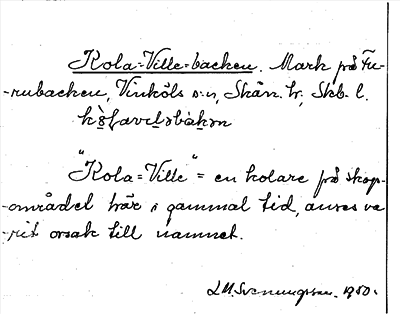 Kola-Ville-backen. Mark på Fu-
-rubacken, Vinköls s:n, Skån. hr, Skb. l.
"Kola-Ville" = en kolare på skog-
-området här i gammal tid, anses va-
-rit orsak till namnet.
L.M. Svenungsson. 1950.